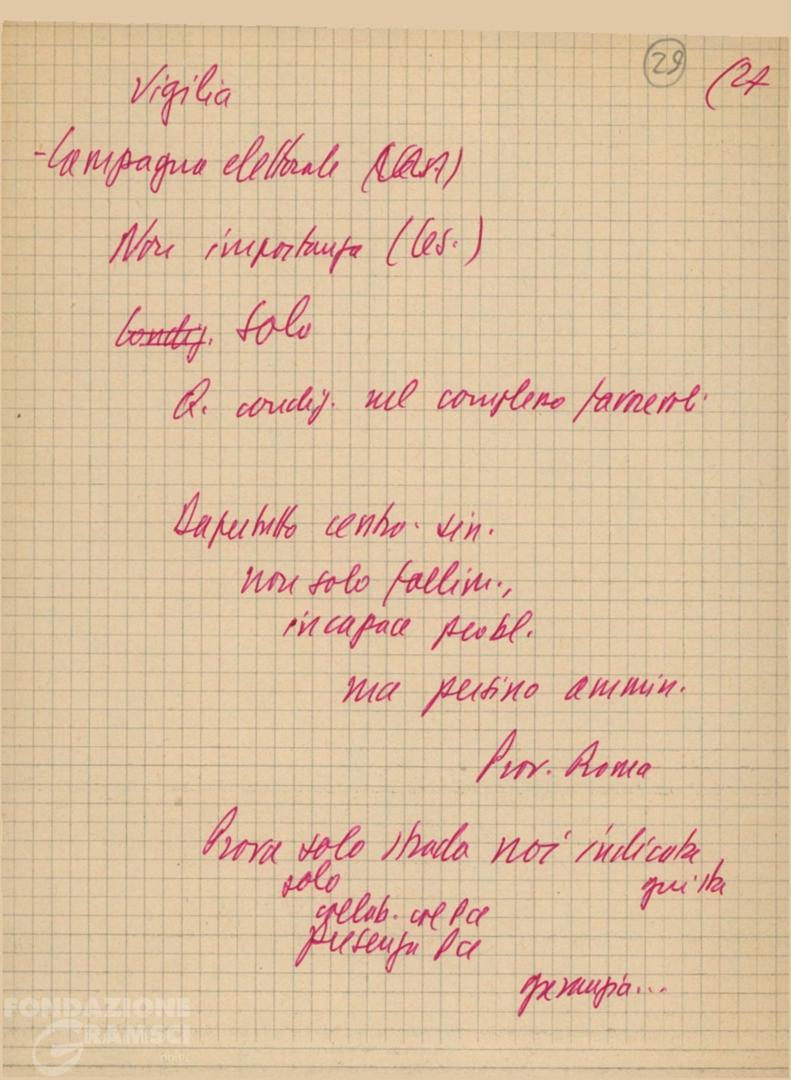 29 (27
Vigilia
- Campagna elettorale
Non importanza (Ces.)
Condiz. Solo
Q. condiz. nel complesso favorevoli
Dapertutto centro-sin.
non solo fallim.,
incapace probl.
ma persino ammin.
Prov. Roma
Prova solo strada noi indicata
solo giusta
collab. col Pci
presenza Pci
garanzia...
FONDAZIONE
GRAMSCI